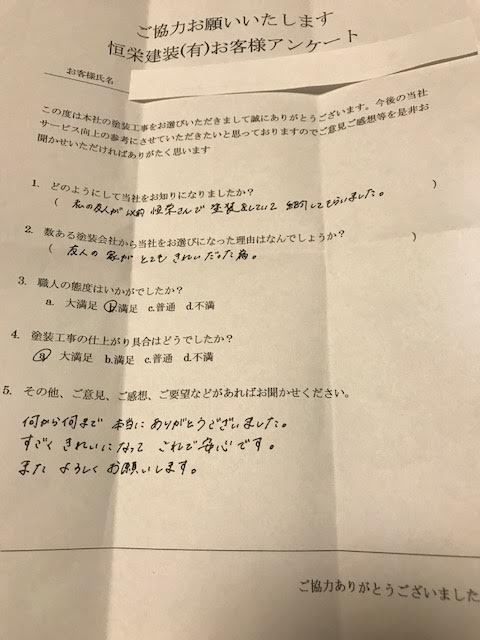 ご協力お願いいたします
恒栄建装(有)お客様アンケート
お客様氏名
この度は本社の塗装工事をお選びいただきまして誠にありがとうございます。今後の当社
サービス向上の参考にさせていただきたいと思っておりますのでご意見ご感想等を是非お
聞かせいただければありがたく思います
1. どのようにして当社をお知りになりましたか?
( 私の友人が以前 恒栄さんで 塗装をしていて 紹介してもらいました。 )
2. 数ある塗装会社から当社をお選びになった理由はなんでしょうか?
( 友人の 家が とても きれいだった為。 )
3. 職人の態度はいかがでしたか?
a. 大満足 b.満足 c.普通 d.不満
4. 塗装工事の仕上がり具合はどうでしたか?
a 大満足 b.満足 c.普通 d.不満
5. その他、ご意見、ご感想、ご要望などがあればお聞かせください。
何から何まで 本当に ありがとうございました。
すごく きれいになって これで 安心です。
また よろしく お願いします。
ご協力ありがとうございました